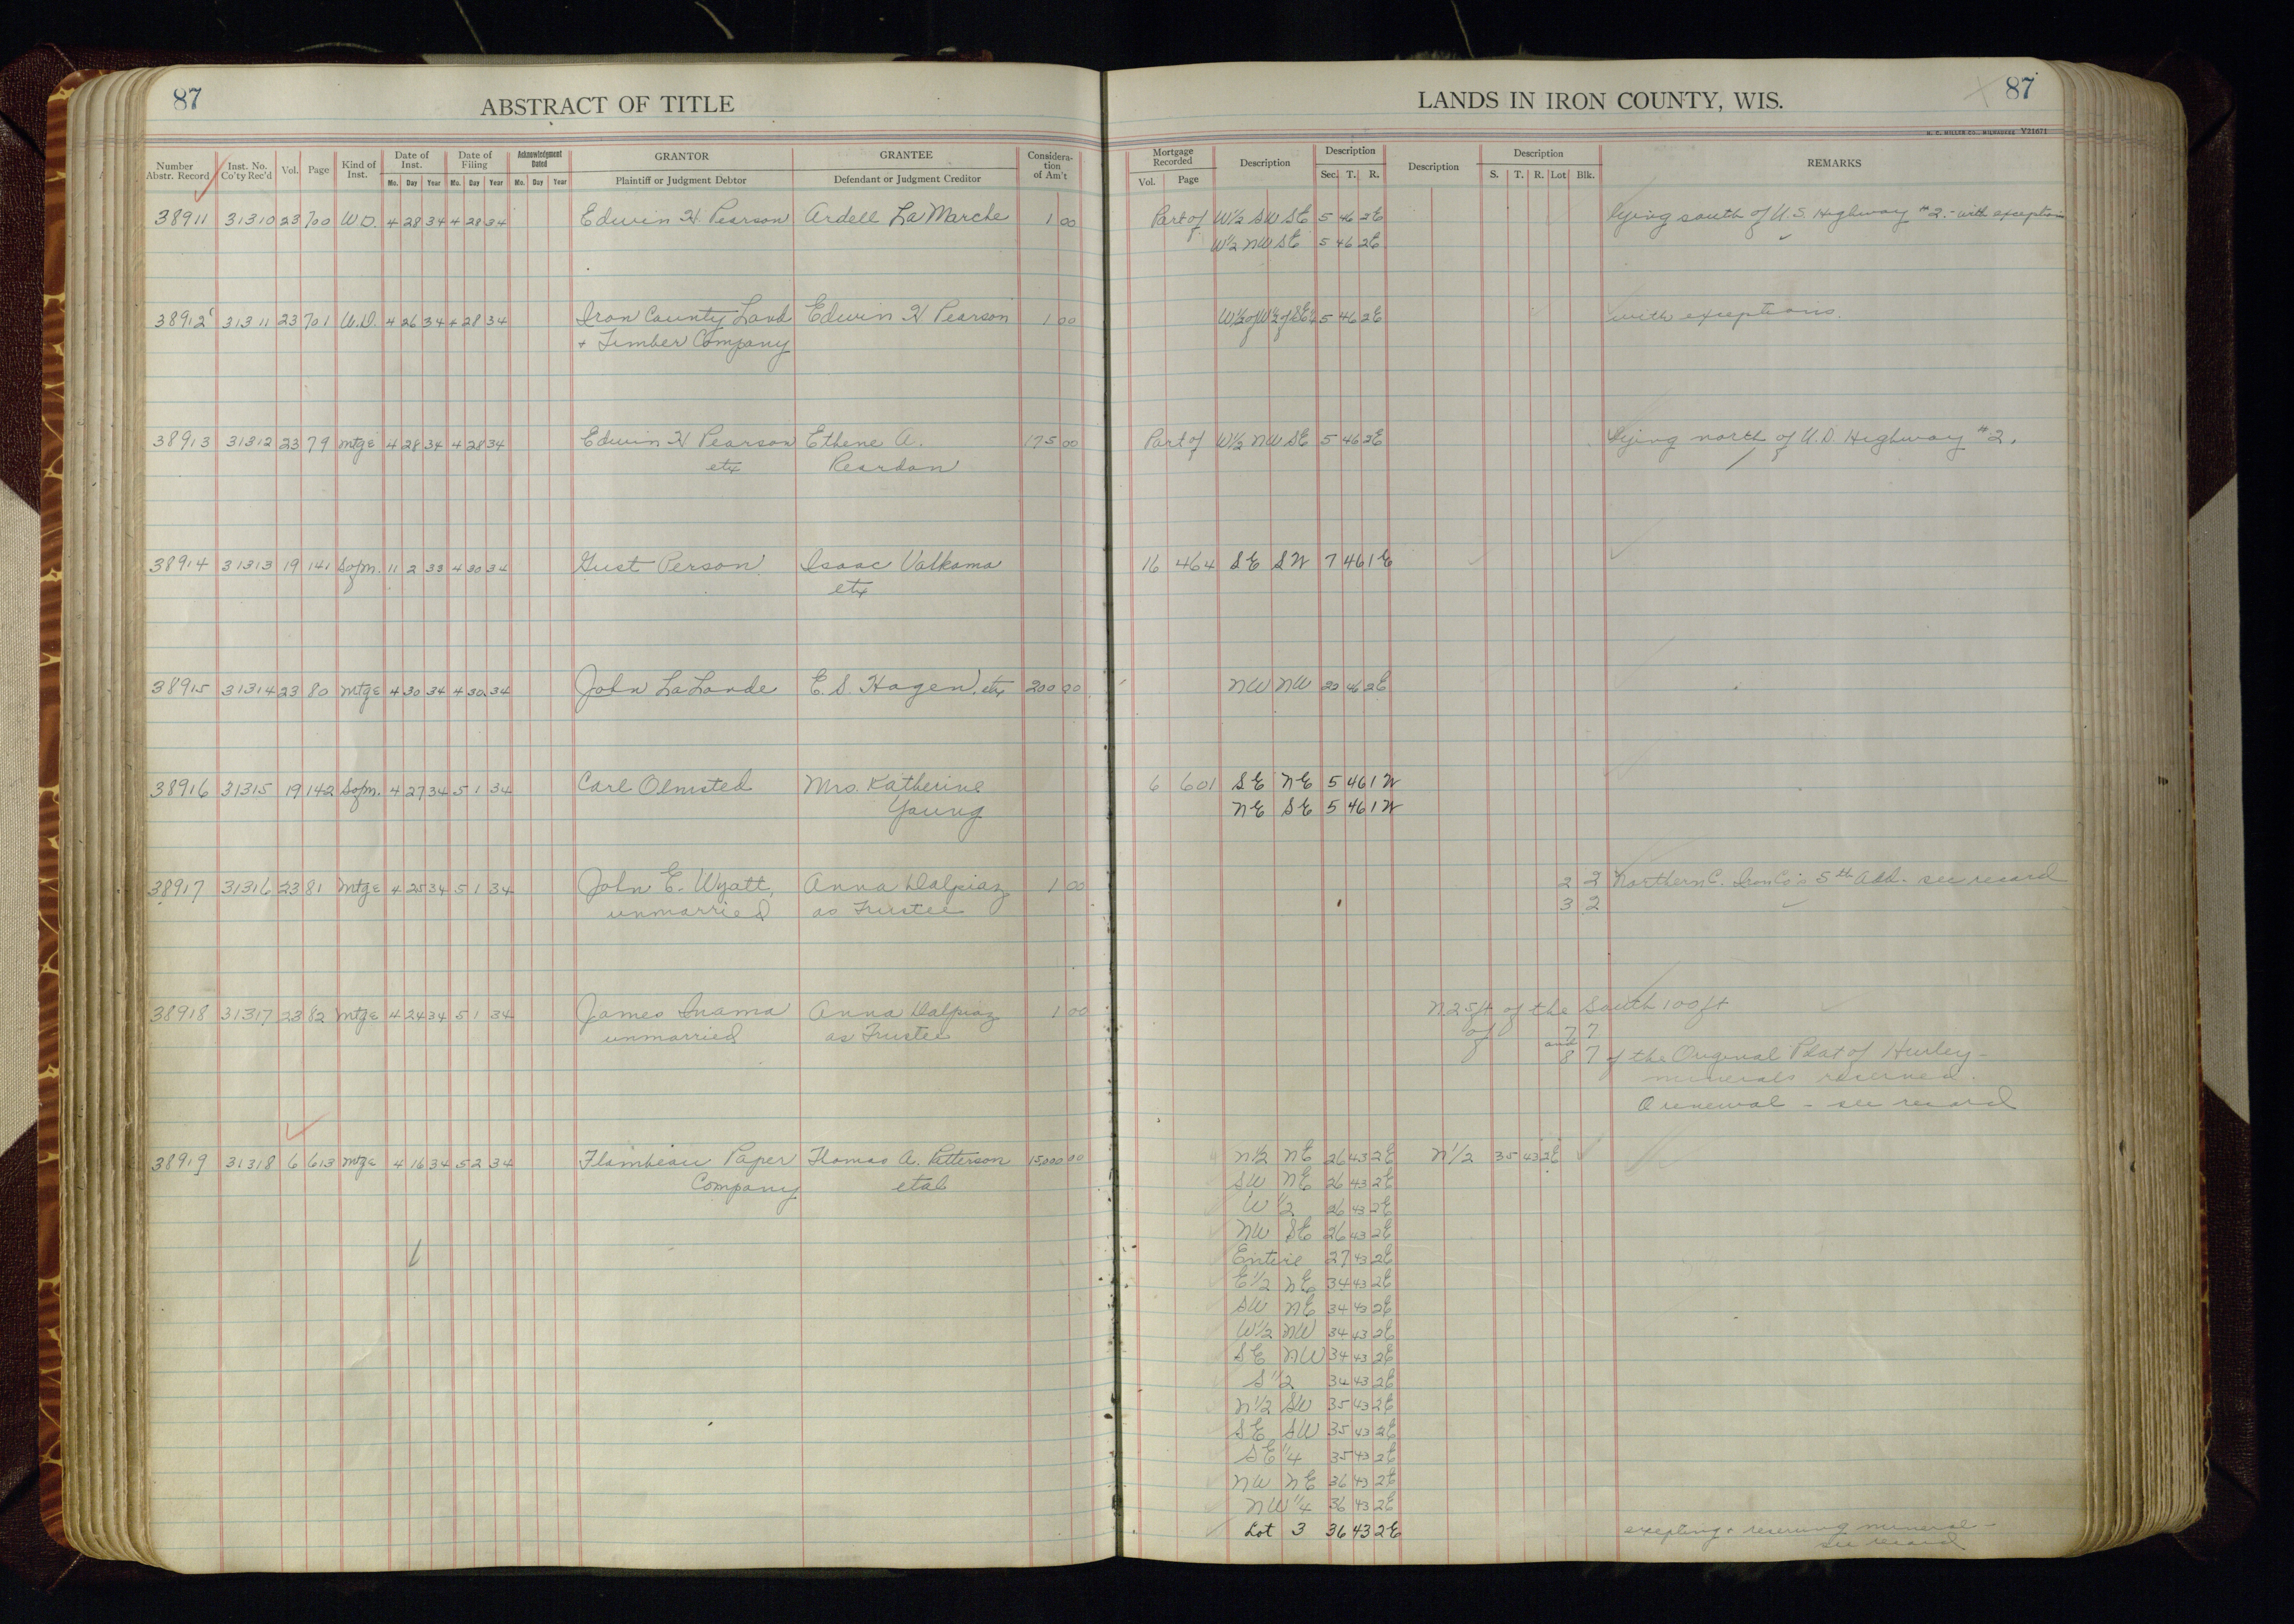 87
ABSTRACT OF TITLE
Number Abstr. Record | Inst. No. Co'ty Rec'd | Vol. | Page | Kind of Inst. | Date of Inst. Mo. Day Year | Date of Filing Mo. Day Year | Acknowledgment Dated Mo. Day Year | GRANTOR Plaintiff or Judgment Debtor | GRANTEE Defendant or Judgment Creditor | Consideration of Am't
38911 31310 23 700 W.D. 4 28 34 4 28 34 Edwin H Pearson Ardell La Marche 1 00
38912 31311 23 701 W.D. 4 26 34 4 28 34 Iron County Land Edwin H Pearson 1 00
+ Timber Company
38913 31312 23 79 Mtge 4 28 34 4 28 34 Edwin H Pearson Ethene A. 175 00
etx Reardon
38914 31313 19 141 Sofm. 11 2 33 4 30 34 Gust Person Isaac Valkama
etx
38915 31314 23 80 Mtge 4 30 34 4 30 34 John LaLande E. S. Hagen etx 200 00
38916 31315 19 142 Sofm. 4 27 34 5 1 34 Carl Olmsted Mrs. Katherine
Young
38917 31316 23 81 Mtge 4 25 34 5 1 34 John E. Wyatt, Anna Dalpiaz 1 00
unmarried as Trustee
38918 31317 23 82 Mtge 4 24 34 5 1 34 James Inama Anna Dalpiaz 1 00
unmarried as Trustee
38919 31318 6 613 Mtge 4 16 34 5 2 34 Flambeau Paper Thomas A. Patterson 15,000 00
Company etal
87
LANDS IN IRON COUNTY, WIS.
H. C. MILLER CO., MILWAUKEE V21671
Mortgage Recorded Vol. Page | Description | Description Sec. T. R. | Description | Description S. T. R. Lot Blk. | REMARKS
Part of W½ SW SE 5 46 2E lying south of U.S. Highway #2. - with exceptions
W½ NW SE 5 46 2E
W½ of W½ of SE¼ 5 46 2E with exceptions.
Part of W½ NW SE 5 46 2E lying north of U.S. Highway #2.
16 464 SE SW 7 46 1E
NW NW 22 46 2E
6 601 SE NE 5 46 1W
NE SE 5 46 1W
2 2 Northern C. Iron Co's 5th Add. see record
3 2
N 25 ft of the South 100 ft
of 7 7
and 8 7 of the Original Plat of Hurley -
minerals reserved.
A renewal - see record
N½ NE 26 43 2E N½ 35 43 2E
SW NE 26 43 2E
W½ 26 43 2E
NW SE 26 43 2E
Entire 27 43 2E
E½ NE 34 43 2E
SW NE 34 43 2E
W½ NW 34 43 2E
SE NW 34 43 2E
S½ 34 43 2E
N½ SW 35 43 2E
SE SW 35 43 2E
SE¼ 35 43 2E
NW NE 36 43 2E
NW¼ 36 43 2E
Lot 3 36 43 2E excepting + reserving mineral -
see record